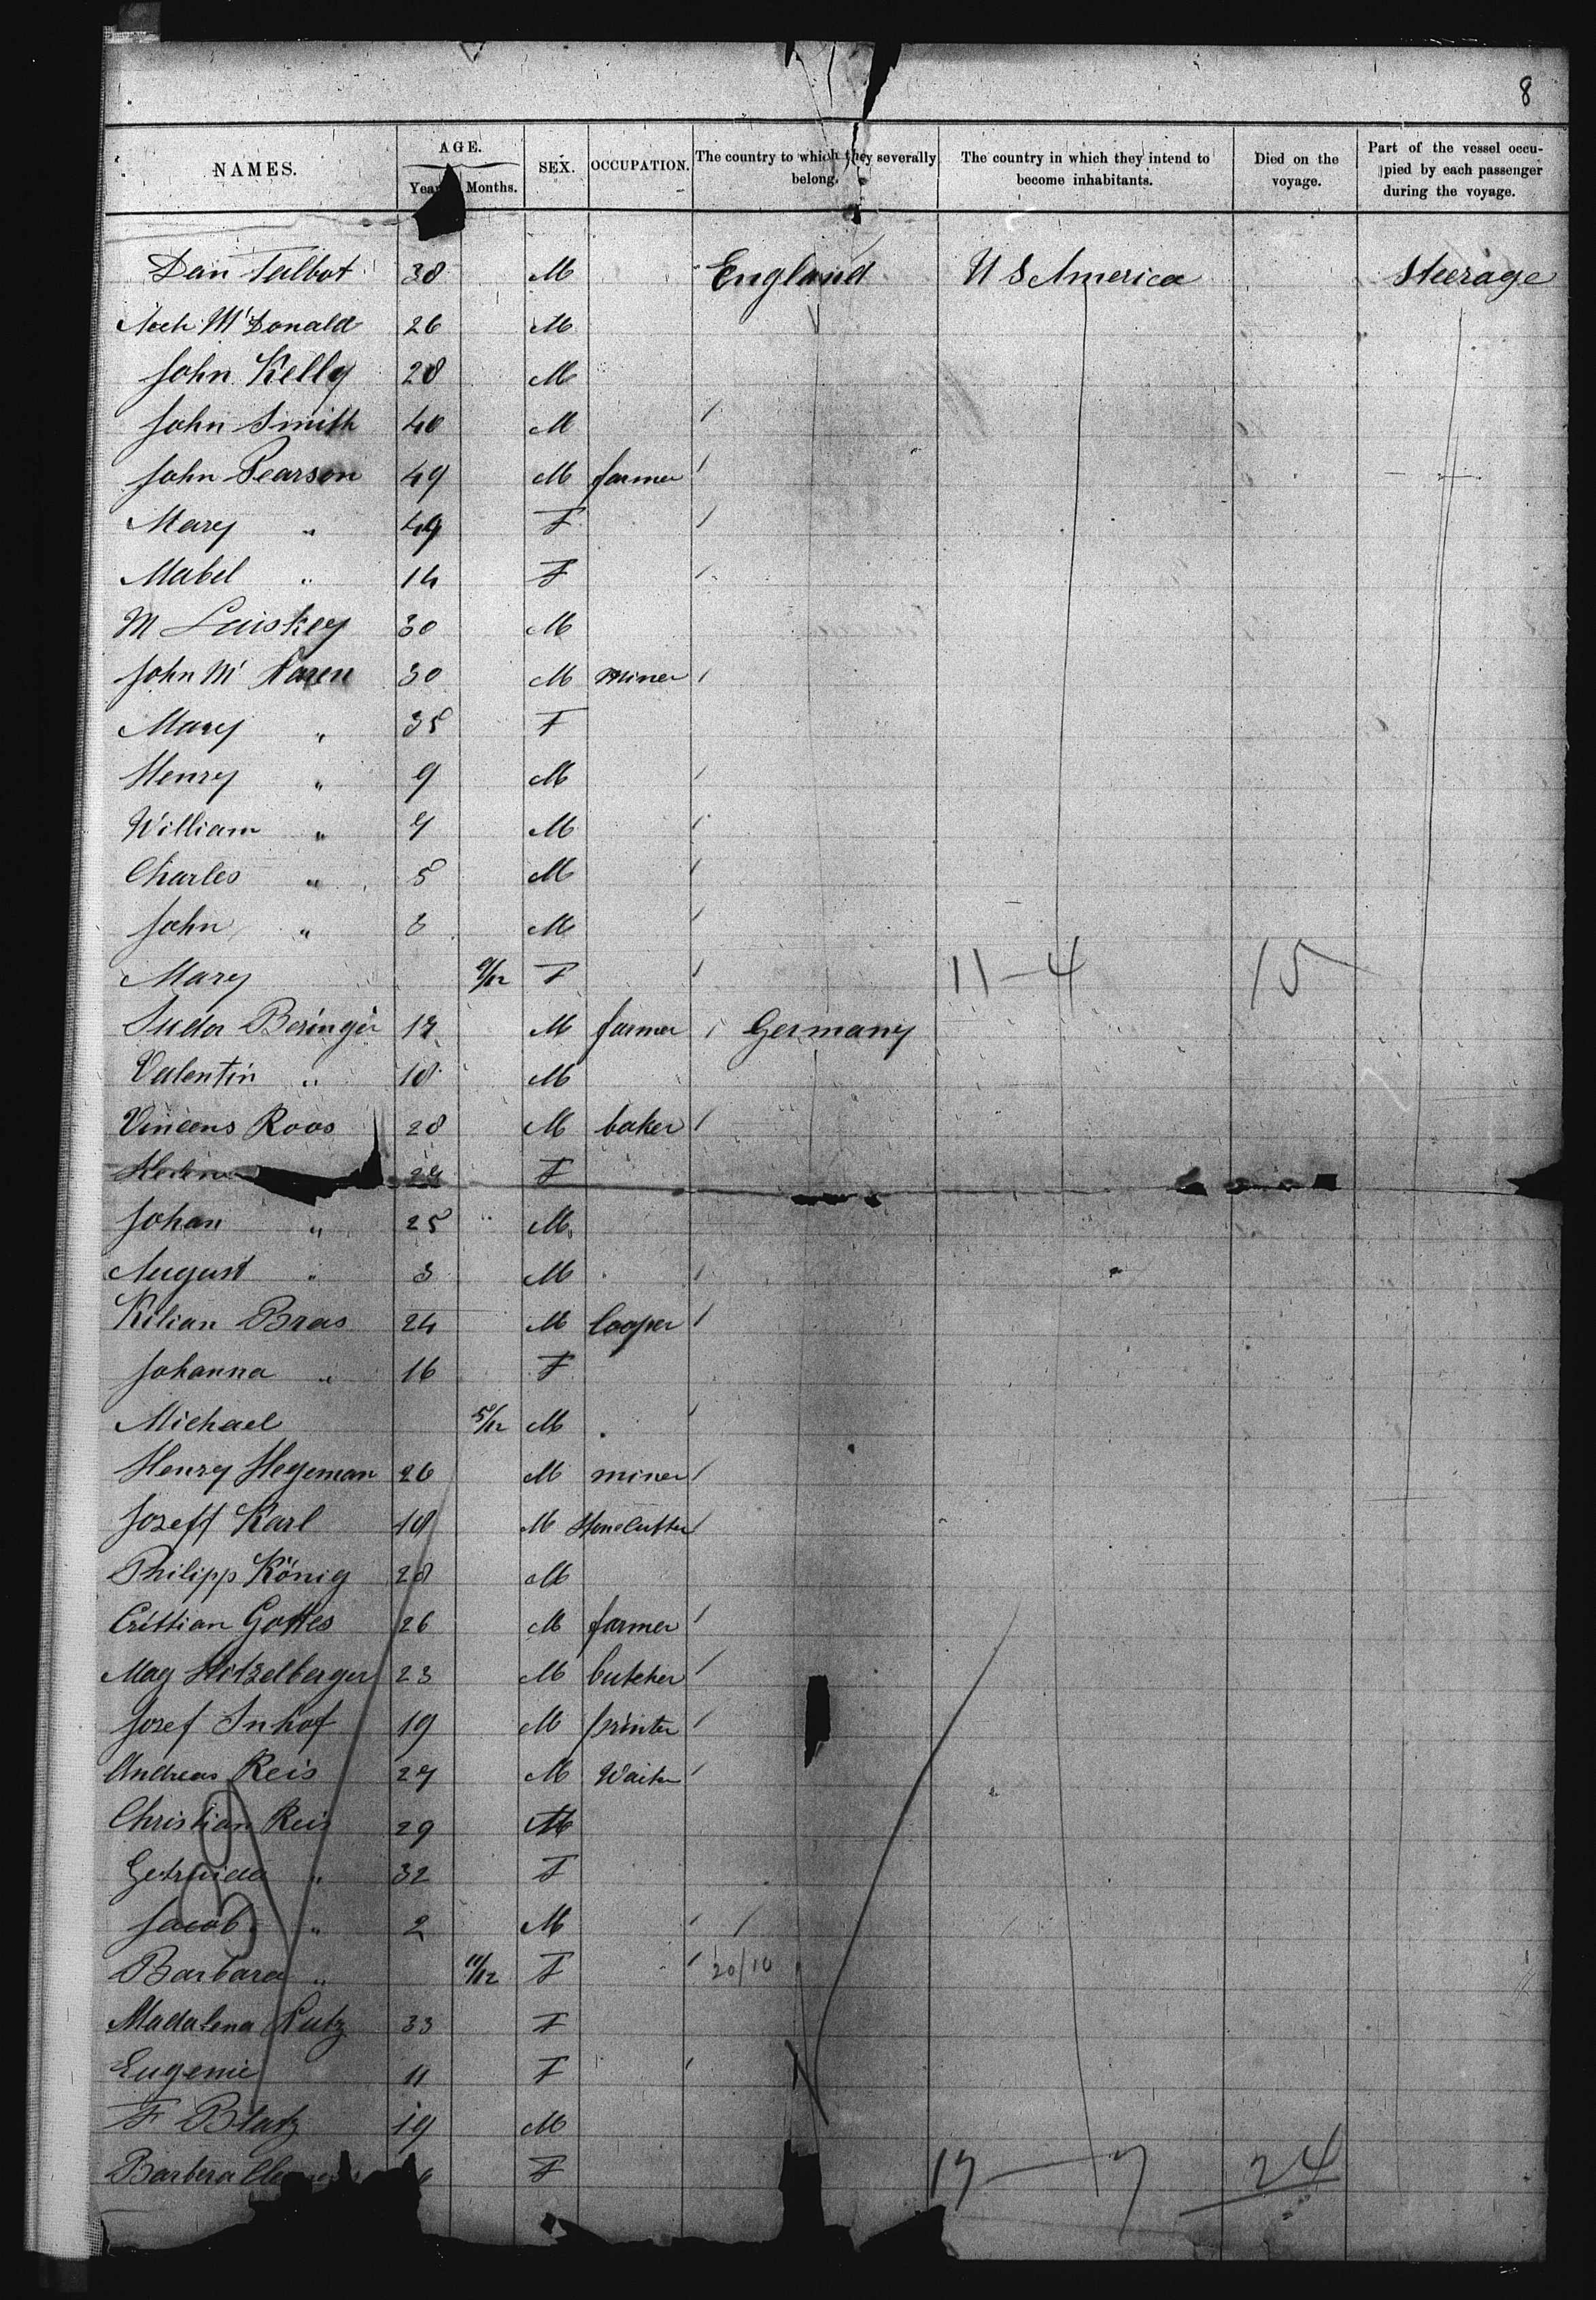 8
NAMES. AGE. Years Months. SEX. OCCUPATION. The country to which they severally belong. The country in which they intend to become inhabitants. Died on the voyage. Part of the vessel occupied by each passenger during the voyage.
Dan Talbot 38 M England U S America Steerage
M'Donald 26 M
John Kelly 28 M
John Smith 40 M
John Pearson 49 M farmer
Mary " 49 F
Mabel " 14 F
M 30 M
John M' 30 M miner
Mary " 35 F
Henry " 9 M
William " 7 M
Charles " 5 M
John " 3 M
Mary 9/12 F 11-4 15
Beringer M farmer Germany
Valentin " 18 M
Vincens Roos 28 M baker
F
Johan " 25 M
August " 3 M
Kilian Bras 24 M Cooper
Johanna " 16 F
Michael 5/12 M
Henry Hegeman 26 M miner
Jozeff Karl 18 M Stonecutter
Philipp König 28 M
Cristian Gottes 26 M farmer
Mag Hitzelberger 23 M butcher
Jozef Inhof 19 M printer
Andreas Reis 27 M Waiter
Christian Reis 29 M
Getruida " 32 F
Jacob " 2 M
Barbara " 11/12 F 20/10
Madalena Lutz 33 F
Eugenie 11 F
F Blatz 19 M
Barbera F 17-7 24